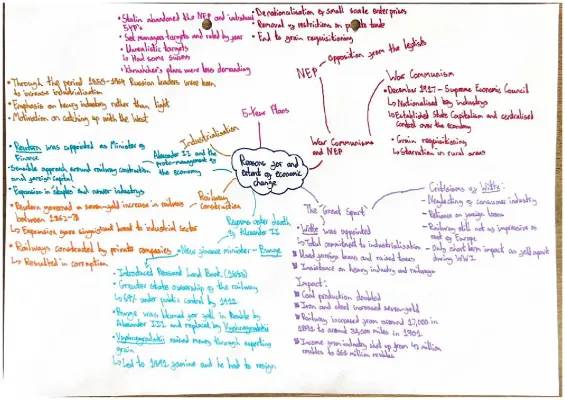 • Stalin abandoned the NEP and introduced
5YP's
• Set managers targets and ruled by fear
• Unrealistic targets
↳ Had some success
• Khrushchev's plans were less demanding
• Denationalisation of small scale enterprises
• Removal of restrictions on private trade
• End to grain requisitioning
• opposition from the leftists
NEP
War Communism
• December 1917 - Supreme Economic Council
↳ Nationalised key industries
↳ Established State Capitalism and centralised
control over the economy
• Grain requisitioning
↳ Starvation in rural areas
War Communism
and NEP
5-Year Plans
• Through the period 1858-1964 Russian leaders were keen
to increase industrialisation
• Emphasis on heavy industry rather than light
• Motivation on catching up with the West
Industrialisation
• Reutern was appointed as Minister of
Finance
• Sensible approach around railway construction
and foreign capital
• Expansion in staples and newer industries
Alexander II and the
proto-management of
the economy
Reasons for and
extent of economic
change
Railway
Construction
• Reutern governed a seven-fold increase in railways
between 1862-78
↳ Expansion gave significant boost to industrial sector
• Railways constructed by private companies
↳ Resulted in corruption
Reforms after death
of Alexander II
• New finance minister - Bunge
• Introduced Peasant Land Bank (1883)
• Greater state ownership of the railway
↳ 69% under public control by 1911
• Bunge was blamed for fall in Rouble by
Alexander III and replaced by Vyshnegradskii
• Vyshnegradskii raised money through exporting
grain
↳ Led to 1891 famine and he had to resign
The 'Great Spurt'
• Witte was appointed
↳ Total commitment to industrialisation
• Used foreign loans and raised taxes
• Insistence on heavy industry and railways
Impact:
• Coal production doubled
• Iron and steel increased seven-fold
• Railway increased from around 17,000 in
1891 to around 31,000 miles in 1901
• Income from industry shot up from 42 million
roubles to 161 million roubles
Criticisms of Witte:
• Neglecting of consumer industry
• Reliance on foreign loans
• Railway still not as impressive as
rest of Europe
• Only short term impact as fell apart
during WW1